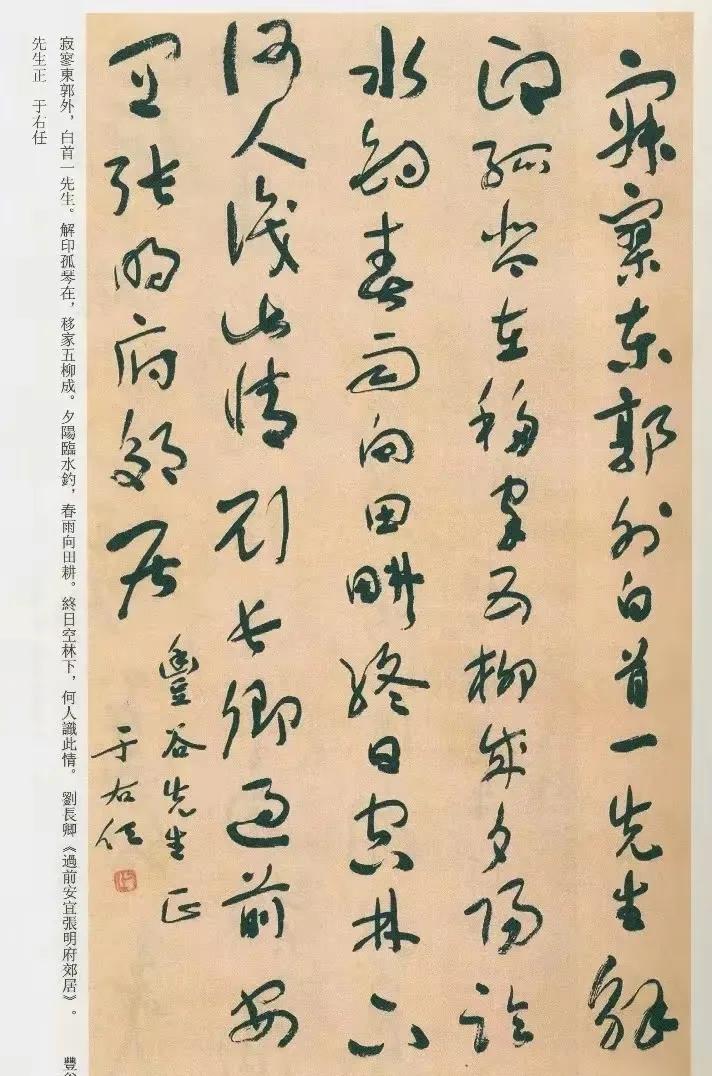 寂寥東郭外白首一先生解
印孤琴在移家五柳成夕陽臨
水釣春雨向田耕終日空林下
何人識此情劉長卿過前安
宜張明府郊居
豐谷先生正
于右任
寂寥東郭外，白首一先生。解印孤琴在，移家五柳成。夕陽臨水釣，春雨向田耕。終日空林下，何人識此情。 劉長卿《過前安宜張明府郊居》。 豐谷
先生正 于右任